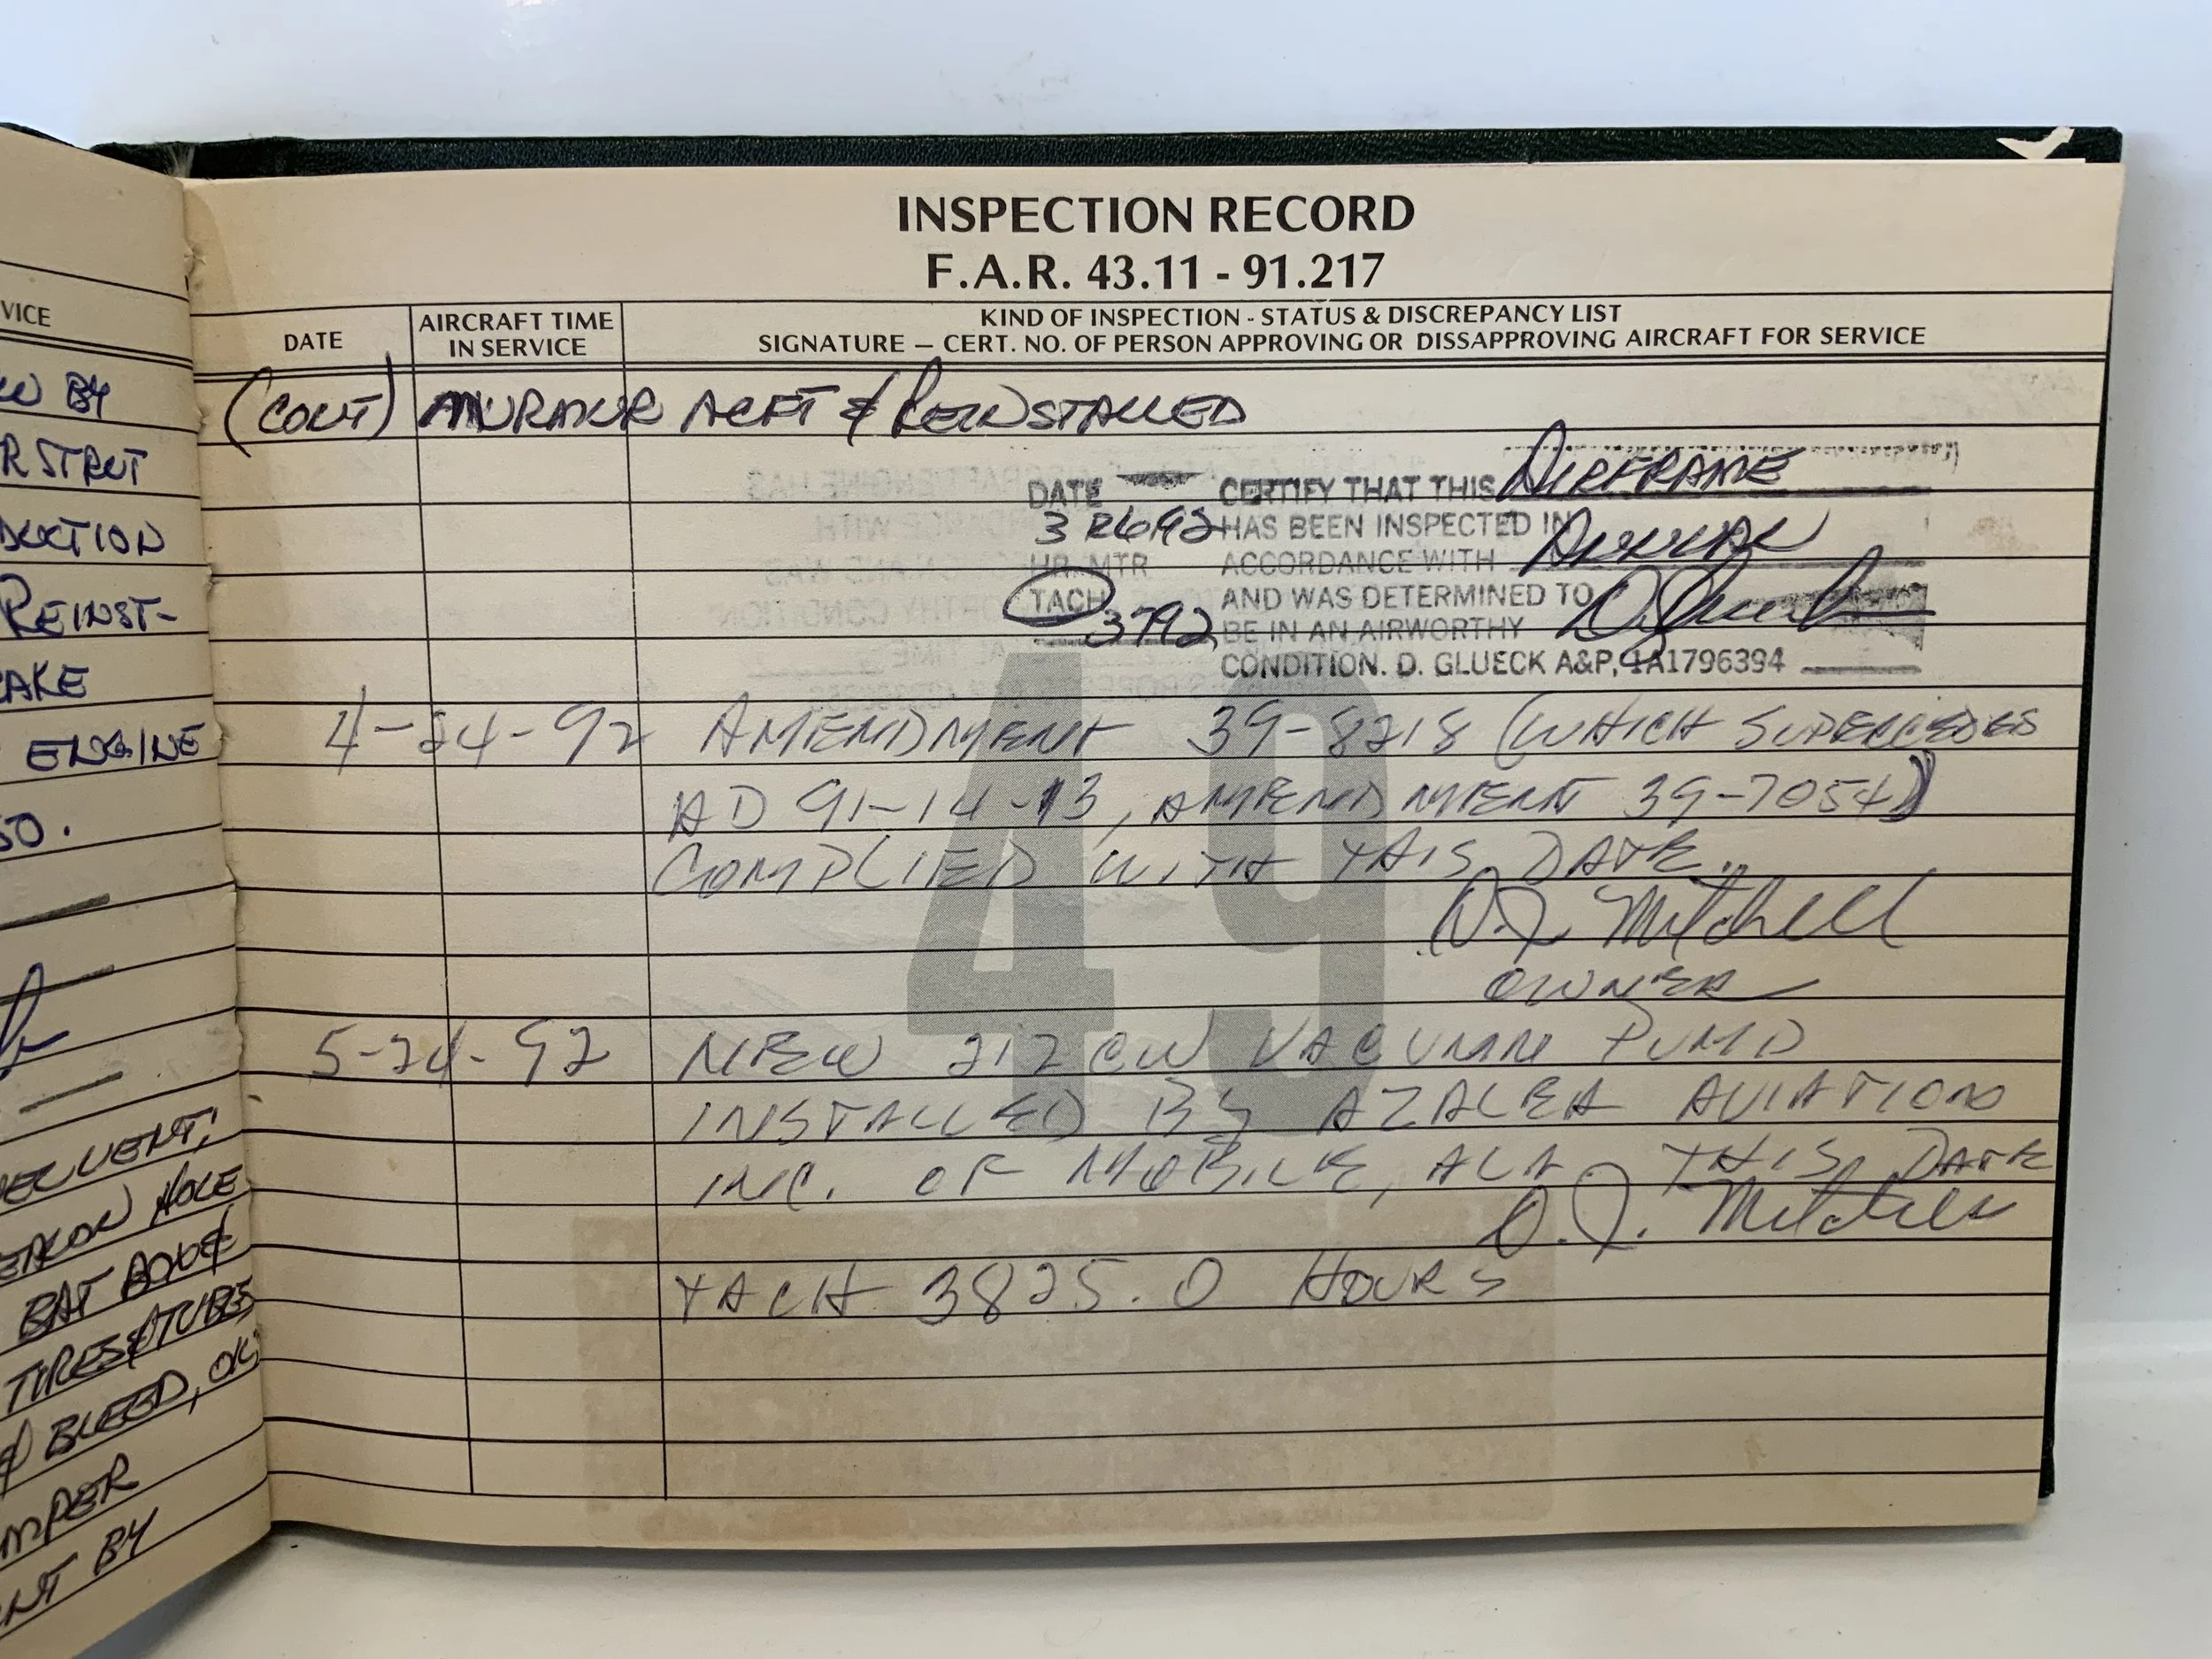 INSPECTION RECORD
F.A.R. 43.11 - 91.217
DATE
AIRCRAFT TIME
IN SERVICE
KIND OF INSPECTION - STATUS & DISCREPANCY LIST
SIGNATURE — CERT. NO. OF PERSON APPROVING OR DISSAPPROVING AIRCRAFT FOR SERVICE
(CONT) ACFT & REINSTALLED
DATE CERTIFY THAT THIS AIRFRAME
HAS BEEN INSPECTED IN
HR. MTR ACCORDANCE WITH ANNUAL
TACH AND WAS DETERMINED TO
3792 BE IN AN AIRWORTHY
CONDITION. D. GLUECK A&P, IA1796394
49
4-24-92 AMENDMENT 39-8218 (WHICH SUPERCEDES
AD 91-14-13, AMENDMENT 39-7054)
COMPLIED WITH THIS DATE.
D.J. Mitchell
OWNER
5-24-92 NEW 212CW VACUUM PUMP
INSTALLED BY AZALEA AVIATION
INC. OF MOBILE, ALA THIS DATE
D.J. Mitchell
TACH 3825.0 HOURS
VICE
BY
R STRUT
DUCTION
REINST-
AKE
ENGINE
50.
HOLE
BAT BOX &
TIRES & TUBES
& BLEED, OK
BY